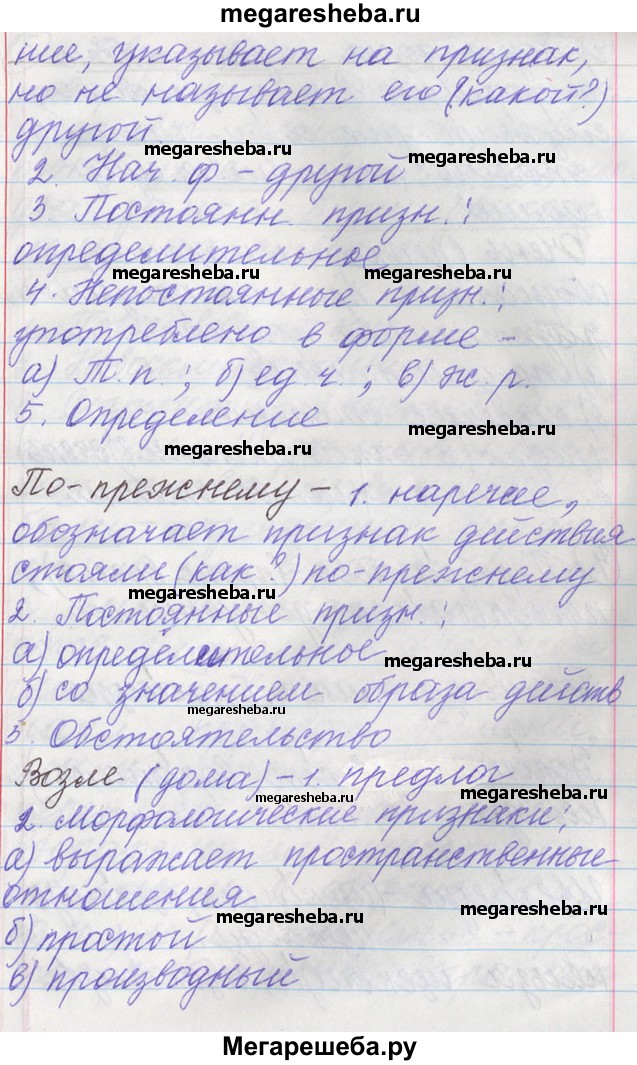 megaresheba.ru
ние, указывает на признак,
но не называет его (какой?)
другой
megaresheba.ru
megaresheba.ru
2. Нач. ф - другой
3 Постоянн. призн.:
определительное
megaresheba.ru
megaresheba.ru
4. Непостоянные призн.:
употреблено в форме -
а) Т. п. ; б) ед. ч. ; в) ж. р.
5. Определение
megaresheba.ru
megaresheba.ru
По-прежнему - 1. наречие,
обозначает признак действия
стояли (как?) по-прежнему
megaresheba.ru
2. Постоянные призн.:
а) определительное
megaresheba.ru
б) со значением образа действ
megaresheba.ru
3. Обстоятельство
Возле (дома) - 1. предлог
megaresheba.ru
megaresheba.ru
2. Морфологические признаки:
а) выражает пространственные
отношения
megaresheba.ru
megaresheba.ru
б) простой
в) производный
Мегарешеба.ру